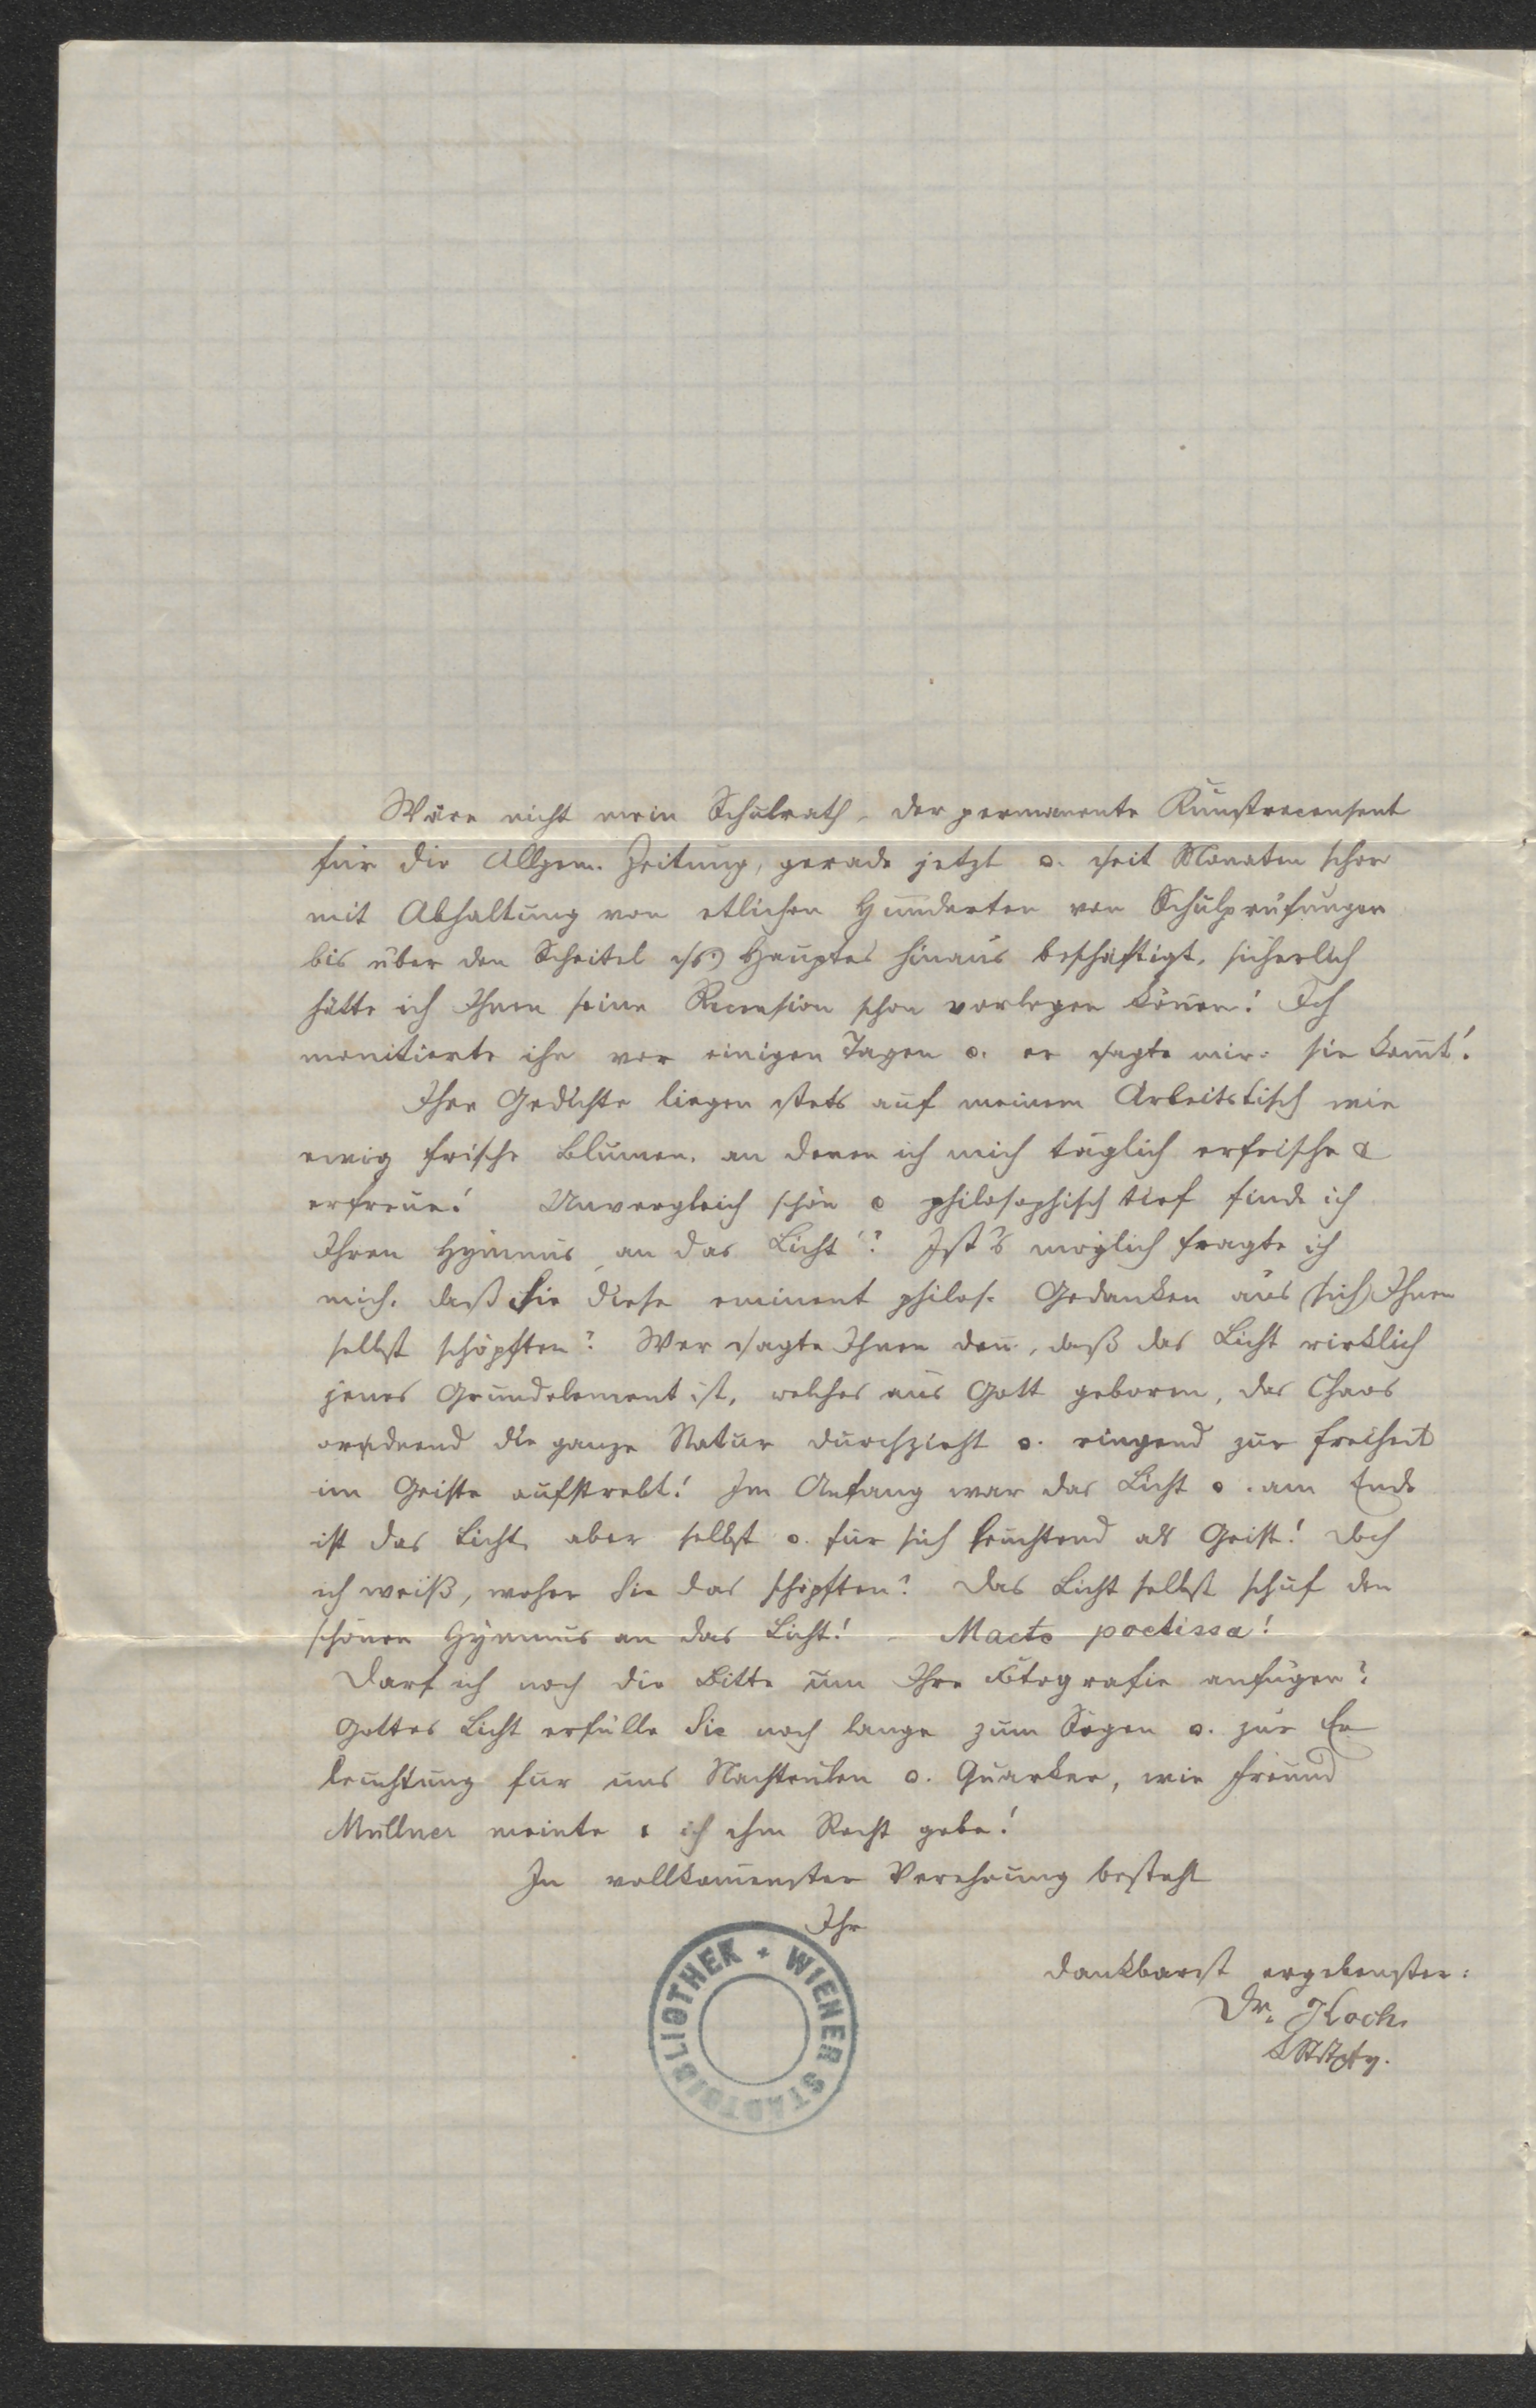 Wäre nicht mein Schulrath, der permanente Kunstrecensent
für die Allgem. Zeitung, gerade jetzt u. seit Monaten schon
mit Abhaltung von etlichen Hunderten von Schulprüfungen
bis über den Scheitel Hauptes hinaus beschäftigt, sicherlich
hätte ich Ihnen seine Recension schon vorlegen können! Ich
monitierte ihn vor einigen Tagen u. er sagte mir: sie kommt!
Ihre Gedichte liegen stets auf meinem Arbeitstisch wie
ewig frische Blumen, an denen ich mich täglich erfrische &
erfreue! Unvergleich schön u philosophisch tief finde ich
Ihren Hymnus „an das Licht“! Ist's möglich fragte ich
mich, daß Sie diese eminent philos. Gedanken aus (sich) Ihnen
selbst schöpften? Wer sagte Ihnen denn, daß das Licht wirklich
jenes Grundelement ist, welches aus Gott geboren, das Chaos
ordnend die ganze Natur durchzieht u. ringend zur Freiheit
im Geiste aufstrebt! Im Anfang war das Licht u. am Ende
ist das Licht, aber selbst u. für sich leuchtend als Geist! Doch
ich weiß, woher Sie das schöpften? Das Licht selbst schuf den
schönen Hymnus an das Licht! – Macte poetissa!
Darf ich noch die Bitte um Ihre Fotografie anfügen?
Gottes Licht erfülle Sie noch lange zum Segen u. zur Er
leuchtung für uns Nachteulen u. Quarker, wie Freund
Müllner meinte u ich ihm Recht gebe!
In vollkommenster Verehrung besteht
Ihr
dankbarst ergebenster:
Dr. Koch.
WIENER STADTBIBLIOTHEK +